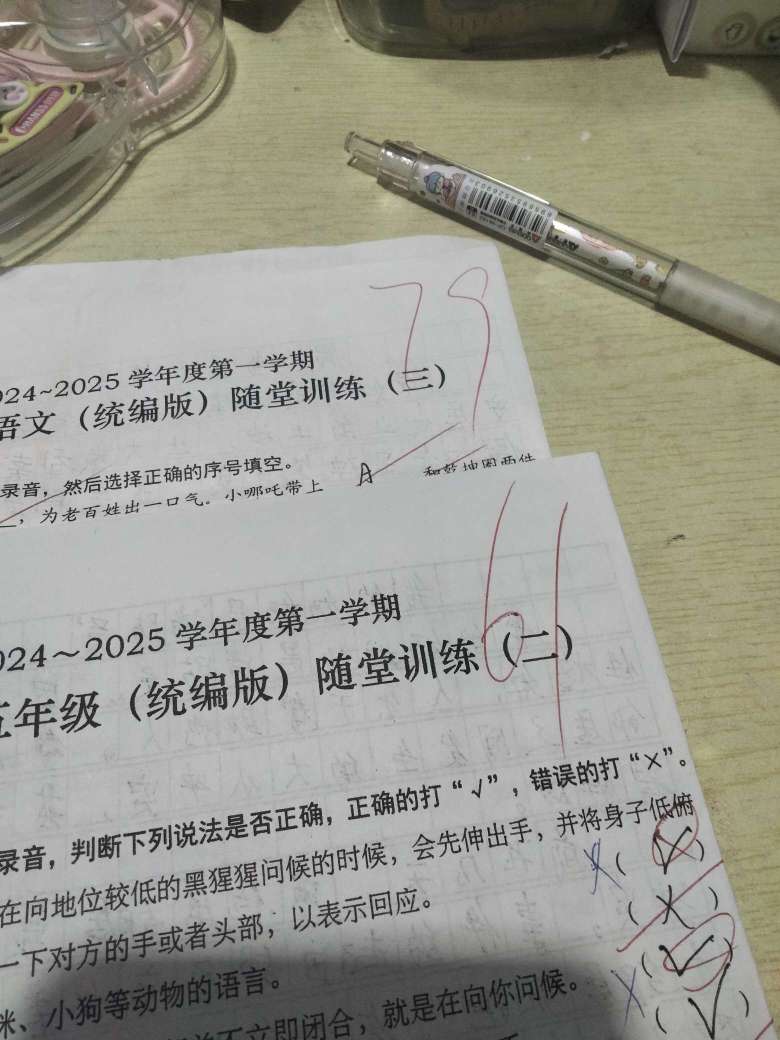 79
024~2025 学年度第一学期
语文（统编版）随堂训练（三）
录音，然后选择正确的序号填空。
，为老百姓出一口气。小哪吒带上 A 和乾坤圈两件
61
024～2025 学年度第一学期
五年级（统编版）随堂训练（二）
录音，判断下列说法是否正确，正确的打“√”，错误的打“×”。
在向地位较低的黑猩猩问候的时候，会先伸出手，并将身子低俯
×（√）
一下对方的手或者头部，以表示回应。（×）
咪、小狗等动物的语言。×（√）
不立即闭合，就是在向你问候。（√）